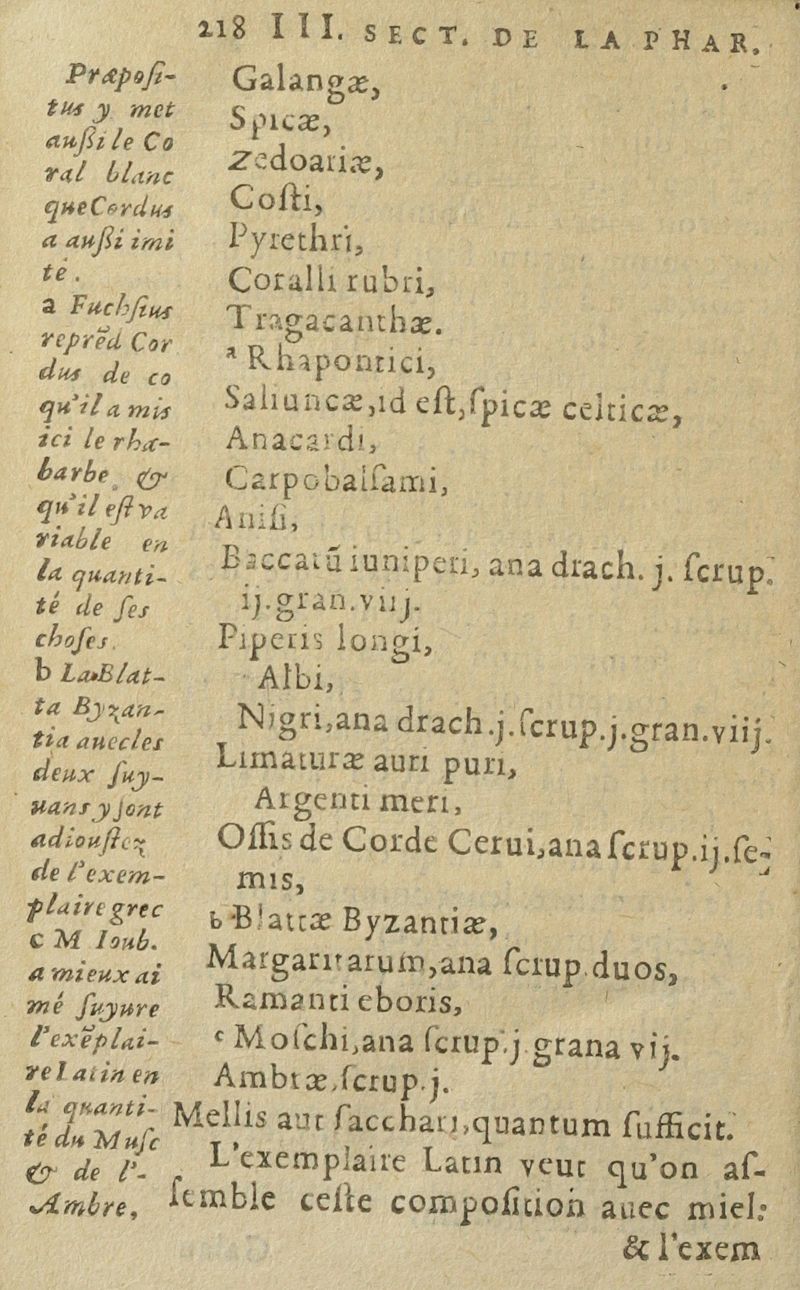 218 III. SECT. DE LA PHAR.
Præposi-
tus y met
außi le Co
ral blanc
que Cordus
a außi imi
té.
a Fuchsius
reprēd Cor
dus de co
qu'il a mis
ici le rhæ-
barbe, &
qu'il est va
riable en
la quanti-
té de ses
choses.
b La Blat-
ta Byzan-
tia auec les
deux suy-
uans y sont
adioustez
de l'exem-
plaire grec
c M Ioub.
a mieux ai
mé suyure
l'exēplai-
re Latin en
la quanti-
té du Musc
& de l'-
Ambre,
Galangæ,
Spicæ,
Zedoariæ,
Costi,
Pyrethri,
Coralli rubri,
Tragacanthæ.
a Rhapontici,
Saliuncæ, id est, spicæ celticæ,
Anacardi,
Carpobalsami,
Anisi,
Baccarū iuniperi, ana drach. j. scrup.
ij. gran. viij.
Piperis longi,
Albi,
Nigri, ana drach. j. scrup. j. gran. viij.
Limaturæ auri puri,
Argenti meri,
Ossis de Corde Cerui, ana scrup. ij. se-
mis,
b Blattæ Byzantiæ,
Margaritarum, ana scrup. duos,
Ramenti eboris,
c Moschi, ana scrup. j. grana vij.
Ambræ, scrup. j.
Mellis aut sacchari, quantum sufficit.
L'exemplaire Latin veut qu'on as-
semble ceste composition auec miel:
& l'exem